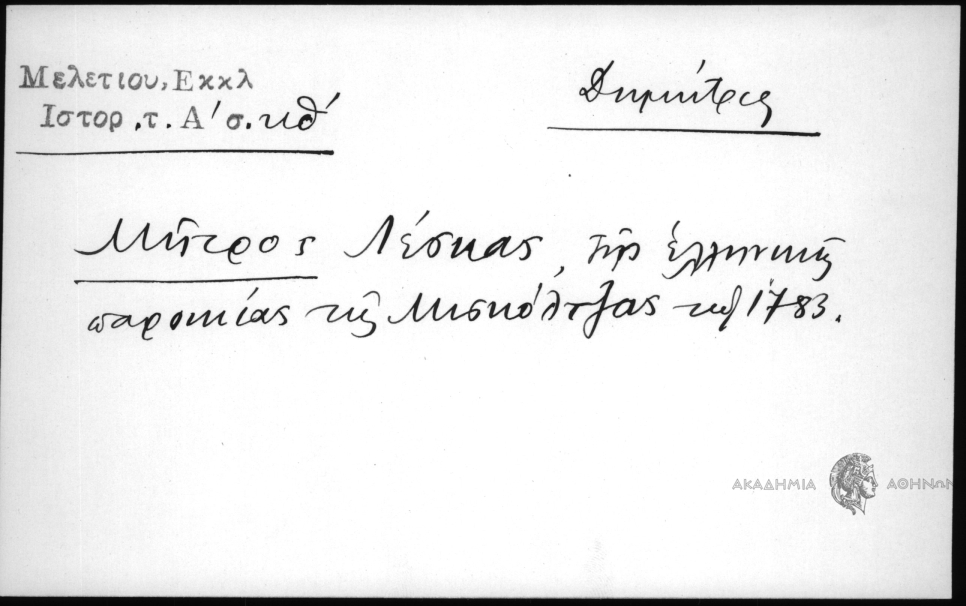 Μελετιου, Εκκλ
Ιστορ. τ. Α' σ. κθ'
Δημήτρης
Μῆτρος Λέσκας, τῆς ἑλληνικῆς
παροικίας τῆς Μισκόλτζας τοῦ 1783.
ΑΚΑΔΗΜΙΑ ΑΘΗΝΩΝ